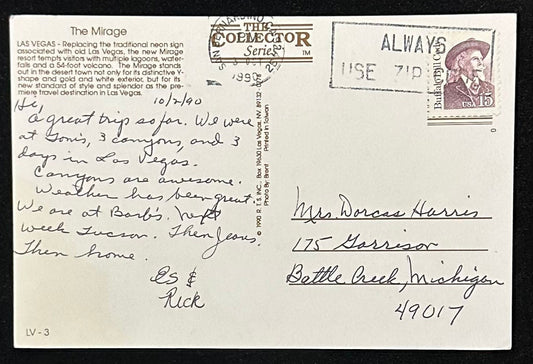 The Mirage
LAS VEGAS - Replacing the traditional neon sign
associated with old Las Vegas, the new Mirage
resort tempts visitors with multiple lagoons, water-
falls and a 54-foot volcano. The Mirage stands
out in the desert town not only for its distinctive Y-
shape and gold and white exterior, but for its
new standard of style and splendor as the pre-
miere travel destination in Las Vegas.
10/2/90
Hi,
A great trip so far. We were
at Toni's, 3 canyons, and 3
days in Las Vegas.
Canyons are awesome.
Weather has been great.
We are at Barb's. Next
week Tucson. Then Jeans.
Then home.
Es &
Rick
LV - 3
THE
COLLECTOR
Series
TM
SAN BERNARDINO
1990
© 1990 R.T.S. INC., Box 19630 Las Vegas, NV. 89132
Photo By: Brent Printed in Taiwan
ALWAYS
USE ZIP
Buffalo Bill Cody
USA 15
Mrs. Dorcas Harris
175 Garrison
Battle Creek, Michigan
49017